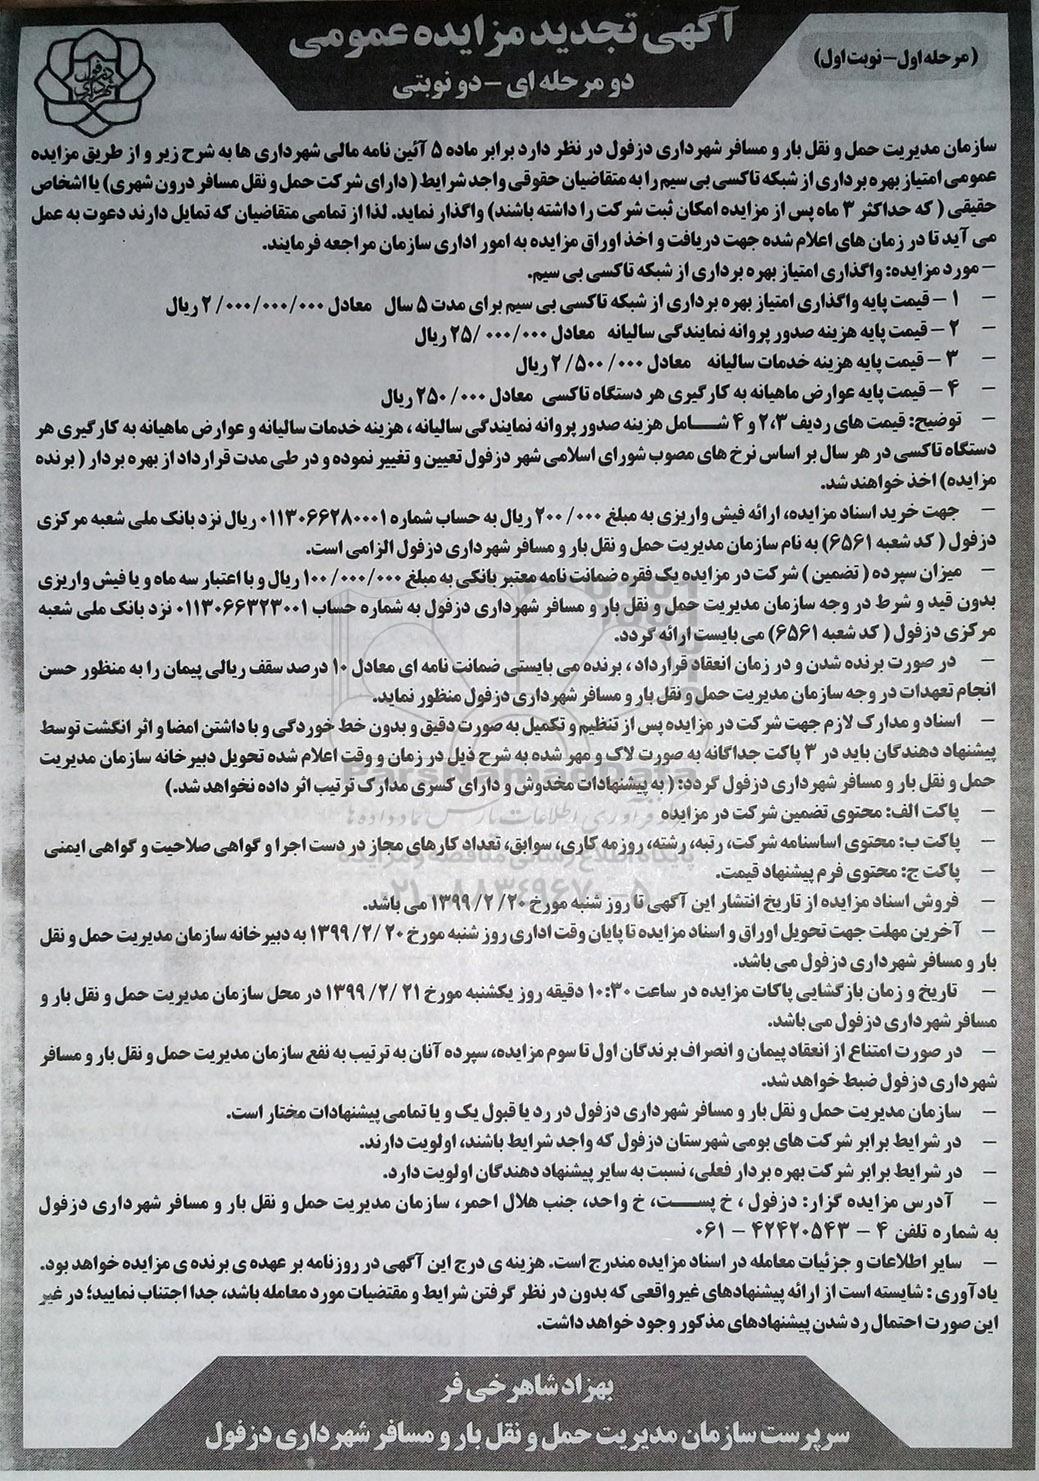 آگهی تجدید مزایده عمومی
(مرحله اول - نوبت اول)
دو مرحله ای - دو نوبتی
سازمان مدیریت حمل و نقل بار و مسافر شهرداری دزفول در نظر دارد برابر ماده ۵ آئین نامه مالی شهرداری ها به شرح زیر و از طریق مزایده
عمومی امتیاز بهره برداری از شبکه تاکسی بی سیم را به متقاضیان حقوقی واجد شرایط (دارای شرکت حمل و نقل مسافر درون شهری) یا اشخاص
حقیقی ( که حداکثر ۳ ماه پس از مزایده امکان ثبت شرکت را داشته باشند) واگذار نماید. لذا از تمامی متقاضیان که تمایل دارند دعوت به عمل
می آید تا در زمان های اعلام شده جهت دریافت و اخذ اوراق مزایده به امور اداری سازمان مراجعه فرمایند.
- مورد مزایده: واگذاری امتیاز بهره برداری از شبکه تاکسی بی سیم.
- ۱ - قیمت پایه واگذاری امتیاز بهره برداری از شبکه تاکسی بی سیم برای مدت ۵ سال معادل ۲/۰۰۰/۰۰۰/۰۰۰ ریال
- ۲ - قیمت پایه هزینه صدور پروانه نمایندگی سالیانه معادل ۲۵/۰۰۰/۰۰۰ ریال
- ۳ - قیمت پایه هزینه خدمات سالیانه معادل ۲/۵۰۰/۰۰۰ ریال
- ۴ - قیمت پایه عوارض ماهیانه به کارگیری هر دستگاه تاکسی معادل ۲۵۰/۰۰۰ ریال
- توضیح: قیمت های ردیف ۲،۳ و ۴ شامل هزینه صدور پروانه نمایندگی سالیانه ، هزینه خدمات سالیانه و عوارض ماهیانه به کارگیری هر
دستگاه تاکسی در هر سال بر اساس نرخ های مصوب شورای اسلامی شهر دزفول تعیین و تغییر نموده و در طی مدت قرارداد از بهره بردار ( برنده
مزایده) اخذ خواهند شد.
- جهت خرید اسناد مزایده، ارائه فیش واریزی به مبلغ ۲۰۰/۰۰۰ ریال به حساب شماره ۰۱۱۳۰۶۶۲۸۰۰۰۱ ریال نزد بانک ملی شعبه مرکزی
دزفول ( کد شعبه ۶۵۶۱) به نام سازمان مدیریت حمل و نقل بار و مسافر شهرداری دزفول الزامی است.
- میزان سپرده ( تضمین ) شرکت در مزایده یک فقره ضمانت نامه معتبر بانکی به مبلغ ۱۰۰/۰۰۰/۰۰۰ ریال و با اعتبار سه ماه و یا فیش واریزی
بدون قید و شرط در وجه سازمان مدیریت حمل و نقل بار و مسافر شهرداری دزفول به شماره حساب ۰۱۱۳۰۶۶۳۲۳۰۰۱ نزد بانک ملی شعبه
مرکزی دزفول ( کد شعبه ۶۵۶۱) می بایست ارائه گردد.
- در صورت برنده شدن و در زمان انعقاد قرارداد ، برنده می بایستی ضمانت نامه ای معادل ۱۰ درصد سقف ریالی پیمان را به منظور حسن
انجام تعهدات در وجه سازمان مدیریت حمل و نقل بار و مسافر شهرداری دزفول منظور نماید.
- اسناد و مدارک لازم جهت شرکت در مزایده پس از تنظیم و تکمیل به صورت دقیق و بدون خط خوردگی و با داشتن امضا و اثر انگشت توسط
پیشنهاد دهندگان باید در ۳ پاکت جداگانه به صورت لاک و مهر شده به شرح ذیل در زمان و وقت اعلام شده تحویل دبیرخانه سازمان مدیریت
حمل و نقل بار و مسافر شهرداری دزفول گردد: ( به پیشنهادات مخدوش و دارای کسری مدارک ترتیب اثر داده نخواهد شد.)
- پاکت الف: محتوی تضمین شرکت در مزایده
- پاکت ب: محتوی اساسنامه شرکت، رتبه، رشته، روزمه کاری، سوابق، تعداد کارهای مجاز در دست اجرا و گواهی صلاحیت و گواهی ایمنی
- پاکت ج: محتوی فرم پیشنهاد قیمت.
- فروش اسناد مزایده از تاریخ انتشار این آگهی تا روز شنبه مورخ ۱۳۹۹/۲/۲۰ می باشد.
- آخرین مهلت جهت تحویل اوراق و اسناد مزایده تا پایان وقت اداری روز شنبه مورخ ۱۳۹۹/۲/۲۰ به دبیرخانه سازمان مدیریت حمل و نقل
بار و مسافر شهرداری دزفول می باشد.
- تاریخ و زمان بازگشایی پاکات مزایده در ساعت ۱۰:۳۰ دقیقه روز یکشنبه مورخ ۱۳۹۹/۲/۲۱ در محل سازمان مدیریت حمل و نقل بار و
مسافر شهرداری دزفول می باشد.
- در صورت امتناع از انعقاد پیمان و انصراف برندگان اول تا سوم مزایده، سپرده آنان به ترتیب به نفع سازمان مدیریت حمل و نقل بار و مسافر
شهرداری دزفول ضبط خواهد شد.
- سازمان مدیریت حمل و نقل بار و مسافر شهرداری دزفول در رد یا قبول یک و یا تمامی پیشنهادات مختار است.
- در شرایط برابر شرکت های بومی شهرستان دزفول که واجد شرایط باشند، اولویت دارند.
- در شرایط برابر شرکت بهره بردار فعلی، نسبت به سایر پیشنهاد دهندگان اولویت دارد.
- آدرس مزایده گزار: دزفول ، خ پست، خ واحد، جنب هلال احمر، سازمان مدیریت حمل و نقل بار و مسافر شهرداری دزفول
به شماره تلفن ۴ - ۴۲۴۲۰۵۴۳ - ۰۶۱
- سایر اطلاعات و جزئیات معامله در اسناد مزایده مندرج است. هزینه ی درج این آگهی در روزنامه بر عهده ی برنده ی مزایده خواهد بود.
یادآوری : شایسته است از ارائه پیشنهادهای غیرواقعی که بدون در نظر گرفتن شرایط و مقتضیات مورد معامله باشد، جدا اجتناب نمایید؛ در غیر
این صورت احتمال رد شدن پیشنهادهای مذکور وجود خواهد داشت.
بهزاد شاهرخی فر
سرپرست سازمان مدیریت حمل و نقل بار و مسافر شهرداری دزفول
ParsNamadData
پایگاه اطلاع رسانی مناقصه و مزایده
۰۲۱-۸۸۳۴۹۶۷۰-۵